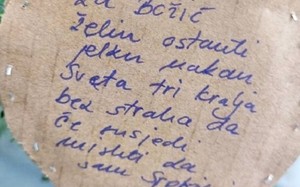 za Božić
želim ostaviti
jelku nakon
Sveta tri kralja
bez straha da
će susjedi
misliti da
sam